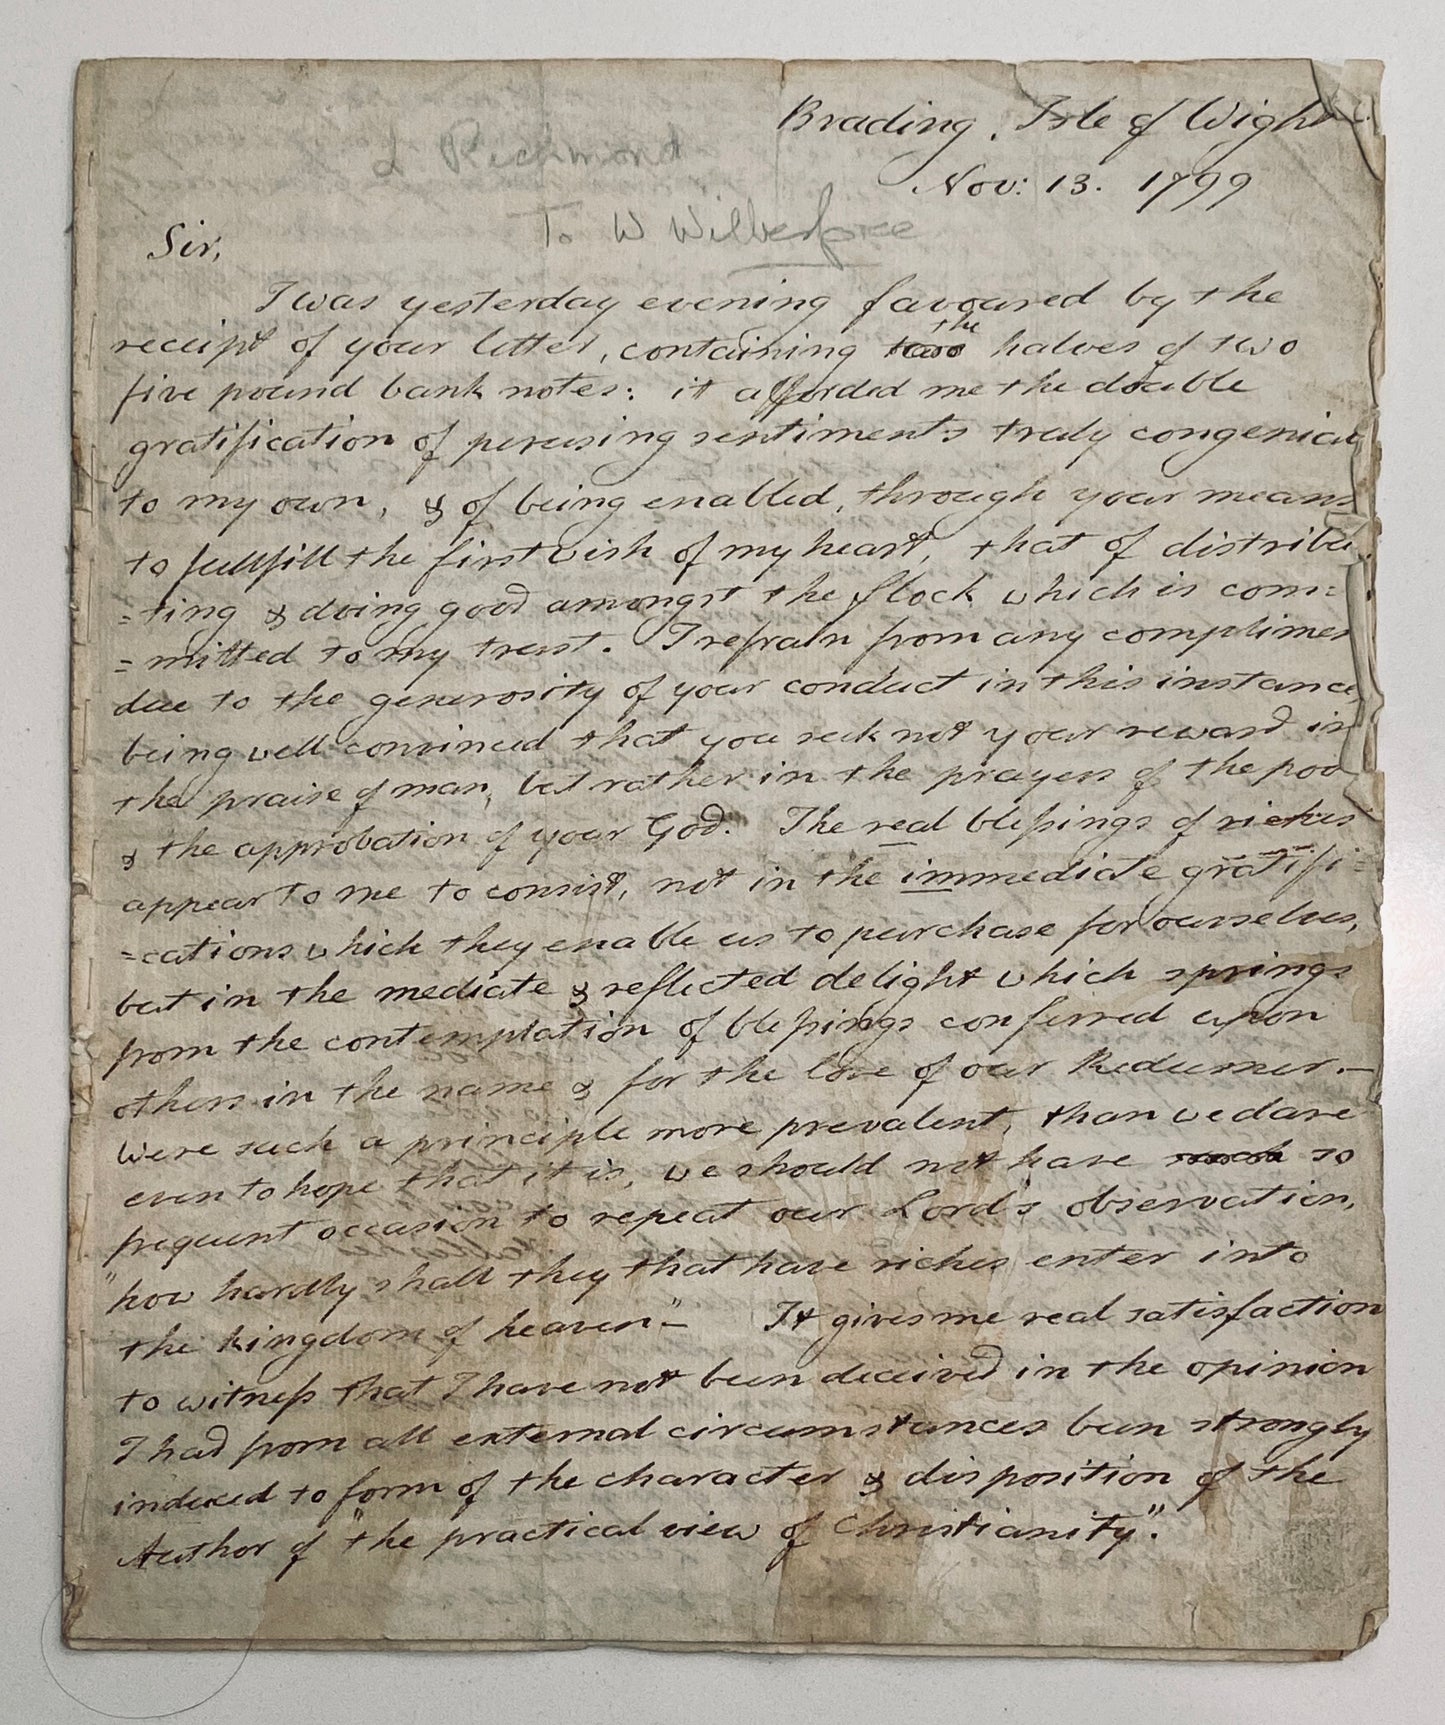 Brading, Isle of Wight
L Richmond
Nov: 13. 1799
To W Wilberforce
Sir,
I was yesterday evening favoured by the
receipt of your letter, containing the halves of two
five pound bank notes: it afforded me the double
gratification of perusing sentiments truly congenial
to my own, & of being enabled, through your means
to fullfill the first wish of my heart, that of distribu
=ting & doing good amongst the flock which is com=
=mitted to my trust. I refrain from any complimen
due to the generosity of your conduct in this instance,
being well convinced that you seek not your reward in
the praise of man, but rather in the prayers of the poor
& the approbation of your God. The real blessings of riches
appear to me to consist, not in the immediate gratifi=
=cations which they enable us to purchase for ourselves,
but in the mediate & reflected delight which springs
from the contemplation of blessings conferred upon
others in the name & for the love of our Redeemer.—
Were such a principle more prevalent, than we dare
even to hope that it is, we should not have so
frequent occasion to repeat our Lord's observation,
"how hardly shall they that have riches enter into
the kingdom of heaven"— It gives me real satisfaction
to witness that I have not been deceived in the opinion
I had from all external circumstances been strongly
induced to form of the character & disposition of the
Author of "the practical view of Christianity".